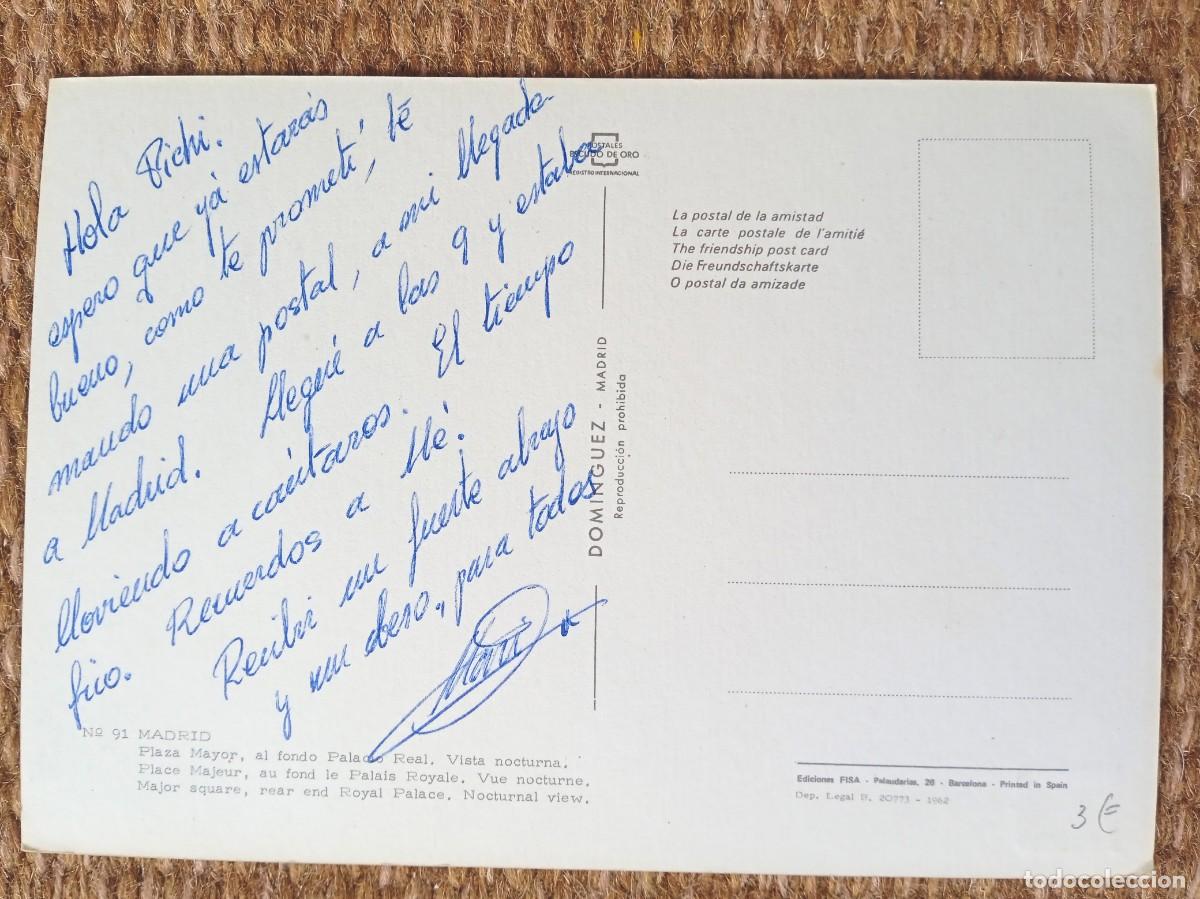 Hola Pichi.
espero que yá estarás
bueno, como te prometí, té
mando una postal, a mi llegada
a Madrid. Llegué a las 9 y estaba
lloviendo a cántaros. El tiempo
frio. Recuerdos a Mé.
Recibir un fuerte abrajo
y un beso, para todos
POSTALES
ESCUDO DE ORO
REGISTRO INTERNACIONAL
DOMINGUEZ - MADRID
Reproducción prohibida
Nº 91 MADRID
Plaza Mayor, al fondo Palacio Real. Vista nocturna.
Place Majeur, au fond le Palais Royale. Vue nocturne.
Major square, rear end Royal Palace. Nocturnal view.
La postal de la amistad
La carte postale de l'amitié
The friendship post card
Die Freundschaftskarte
O postal da amizade
Ediciones FISA - Palaudarias, 26 - Barcelona - Printed in Spain
Dep. Legal B. 20773 - 1962
3 €
todocoleccion